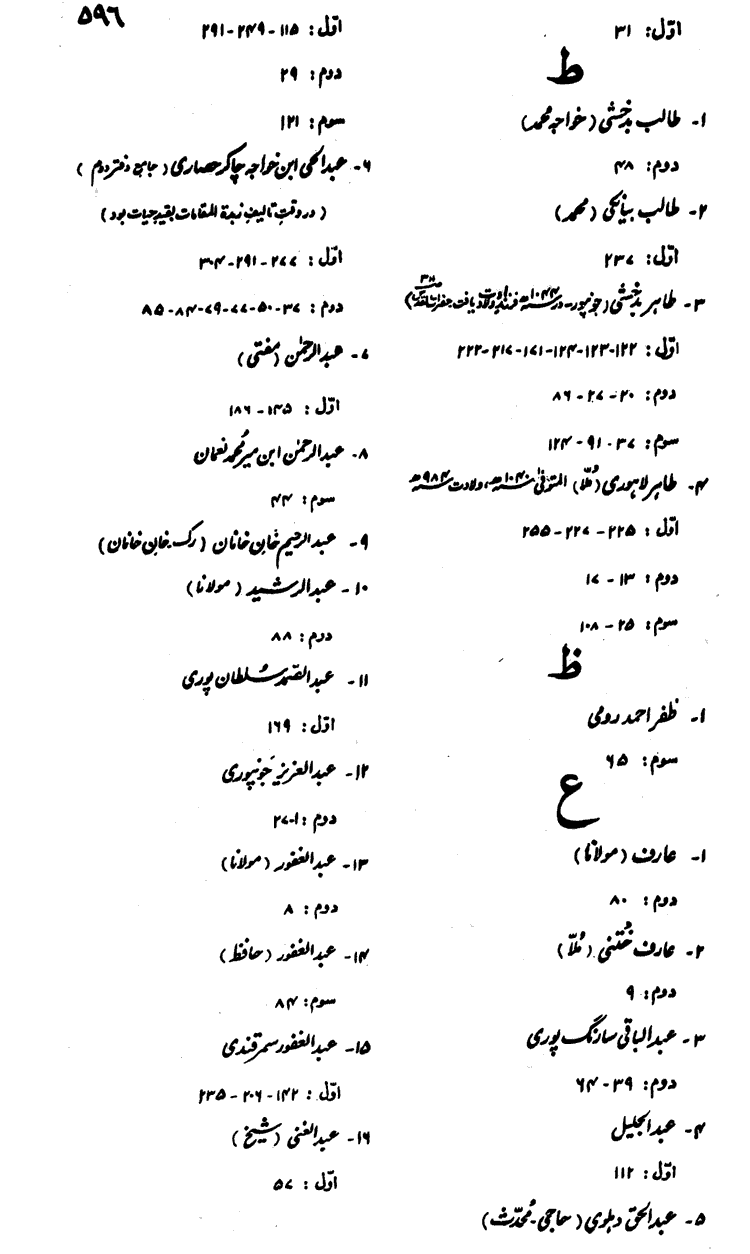 ۵۹۶
اوّل: ۳۱
ط
۱- طالب بدخشی (خواجہ محمد)
دوم: ۴۸
۲- طالب بیانکی (محمد)
اوّل: ۲۳۷
۳- طاہر بدخشی (جونپور-در ۱۰۴۴ھ
اوّل: ۱۲۲-۱۲۳-۱۲۴-۱۷۱-۲۱۷-۲۲۲
دوم: ۲۰-۲۷-۸۶
سوم: ۳۷-۹۱-۱۲۴
۴- طاہر لاہوری (مُلّا) المتوفیٰ ۱۰۴۰ھ، ولادت ۹۸۴ھ
اوّل: ۲۲۵-۲۲۷-۲۵۵
دوم: ۱۳-۱۷
سوم: ۲۵-۱۰۸
ظ
۱- ظفر احمد رومی
سوم: ۶۵
ع
۱- عارف (مولانا)
دوم: ۸۰
۲- عارف خُتنی (مُلّا)
دوم: ۹
۳- عبدالباقی سارنگ پوری
دوم: ۳۹-۶۴
۴- عبدالجلیل
اوّل: ۱۱۲
۵- عبدالحق دہلوی (حاجی-مُحدّث)
اوّل: ۱۱۵-۲۴۹-۲۹۱
دوم: ۲۹
سوم: ۱۲۱
۶- عبدالحی ابن خواجہ چاکر حصاری (جامع دفتر دوم)
(در وقتِ تالیفِ زبدۃ المقامات بقیدِ حیات بود)
اوّل: ۲۷۷-۲۹۱-۳۰۴
دوم: ۳۷-۵۰-۷۷-۷۹-۸۴-۸۵
۷- عبدالرحمٰن (مفتی)
اوّل: ۱۴۵-۱۸۶
۸- عبدالرحمٰن ابن میر محمد نعمان
سوم: ۴۴
۹- عبدالرحیم خانِ خانان (رک خانِ خانان)
۱۰- عبدالرشید (مولانا)
دوم: ۸۸
۱۱- عبدالصّمد سُلطان پوری
اوّل: ۱۶۹
۱۲- عبدالعزیز جَونپوری
دوم: ۱-۲۷
۱۳- عبدالغفور (مولانا)
دوم: ۸
۱۴- عبدالغفور (حافظ)
سوم: ۸۴
۱۵- عبدالغفور سمرقندی
اوّل: ۱۴۲-۲۰۶-۲۳۵
۱۶- عبدالغنی (شیخ)
اوّل: ۵۷